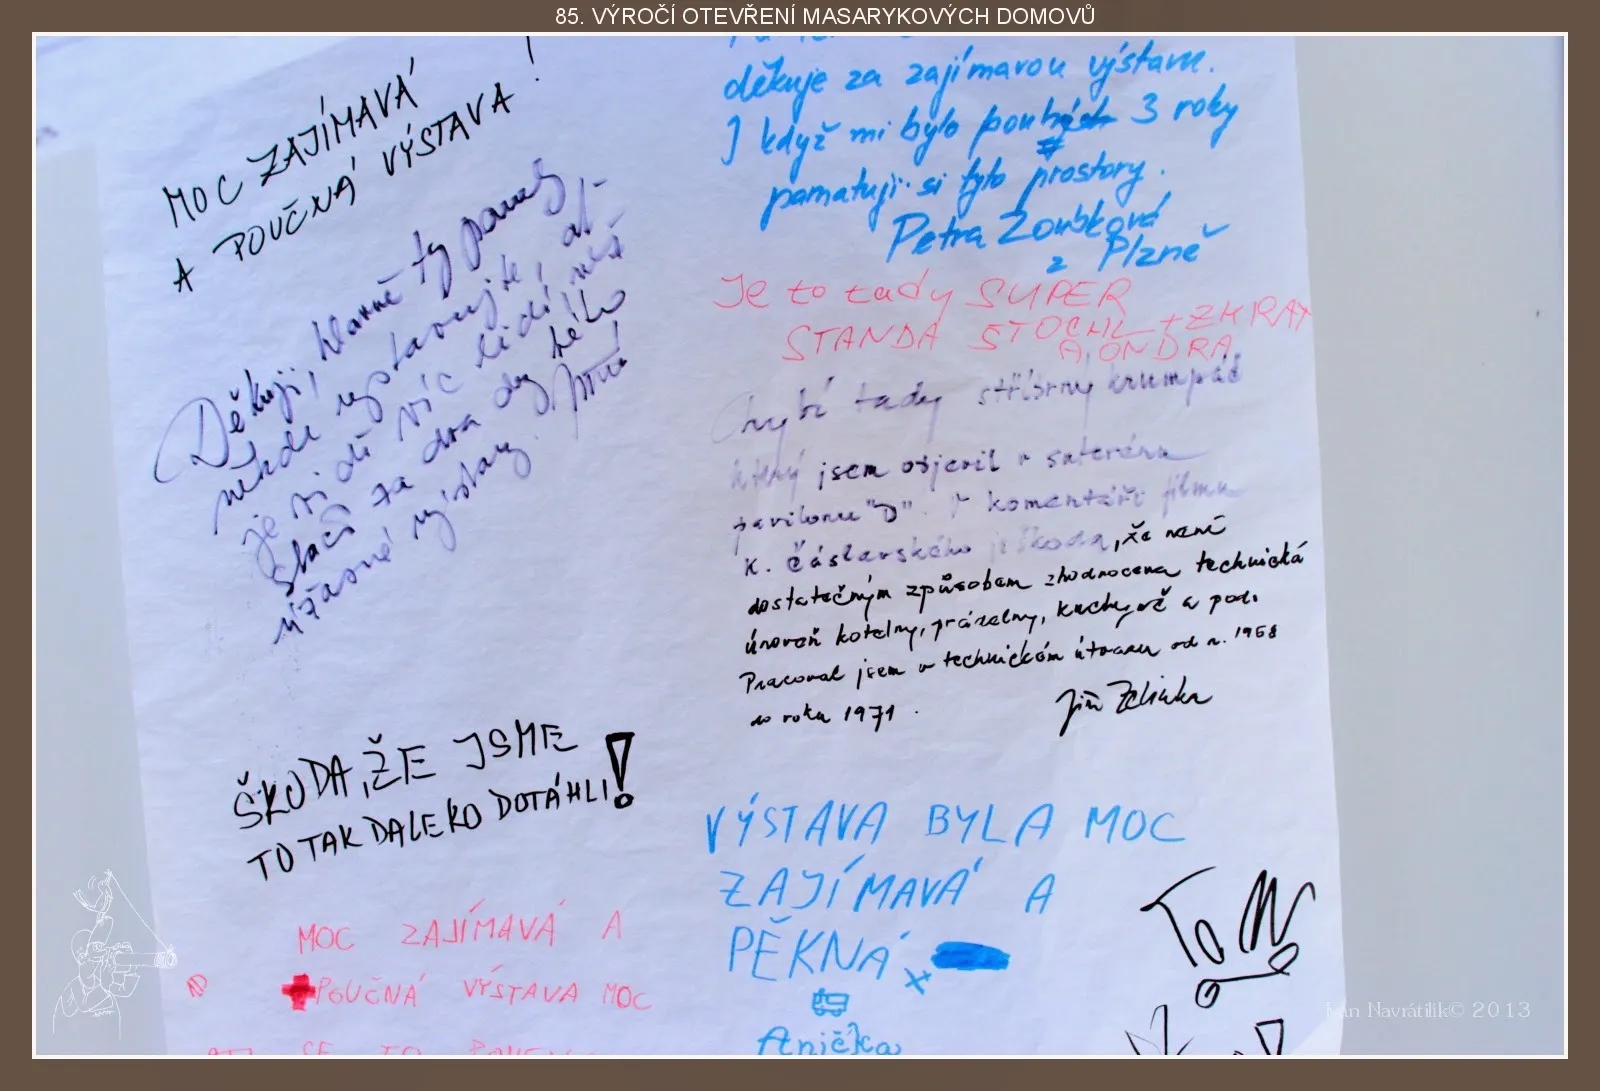 85. VÝROČÍ OTEVŘENÍ MASARYKOVÝCH DOMOVŮ
MOC ZAJÍMAVÁ
A POUČNÁ VÝSTAVA!
Děkuji, hlavně ty panely
někde vystavujte, ať
je vidí víc lidí než
stačí za dva dny této
úžasné výstavy.
ŠKODA, ŽE JSME
TO TAK DALEKO DOTÁHLI!
MOC ZAJÍMAVÁ A
POUČNÁ VÝSTAVA MOC
SE TO
děkuje za zajímavou výstavu.
I když mi bylo pouhých 3 roky
pamatuji si tyto prostory.
Petra Zoubková
z Plzně
Je to tady SUPER
STANDA STOCHL + ZKRAT
A ONDRA
Chybí tady stříbrný krumpáč
který jsem objevil v suterénu
pavilonu "D". V komentáři filmu
K. Čáslavského je škoda, že není
dostatečným způsobem zhodnocena technická
úroveň kotelny, prádelny, kuchyně a pod.
Pracoval jsem v technickém útvaru od r. 1968
do roku 1971.
Jiří Zelinka
VÝSTAVA BYLA MOC
ZAJÍMAVÁ A
PĚKNÁ
Anička
TOM
Jan Navrátilík© 2013